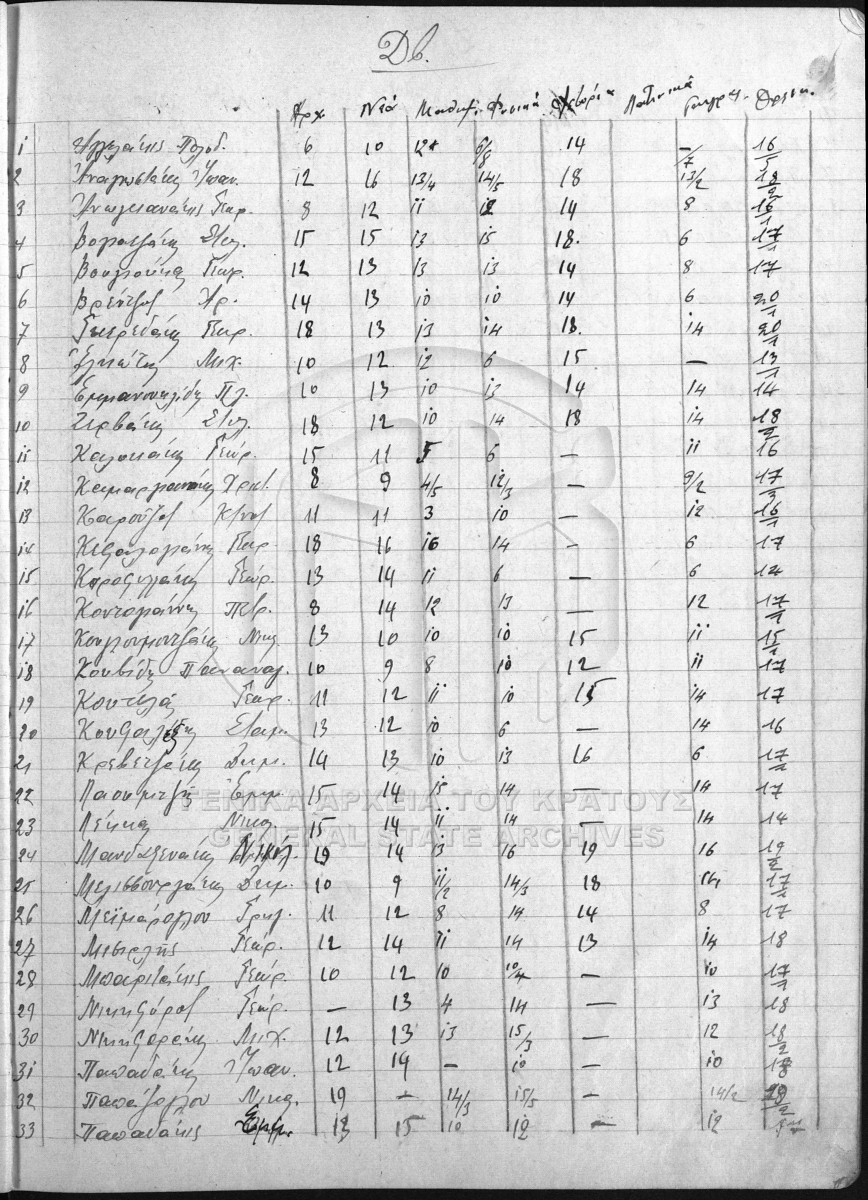 Δβ.
Αρχ. Νέα Μαθημ. Φυσικά Ιστορία Λατινικά Γεωγρ. Θρησκ.
1 Αγγελάκης Πολυδ. 6 10 12 6/8 14 -/7 16/5
2 Αναγνωστάκης Ιωαν. 12 16 13/4 14/5 18 13/2 18/2
3 Ανωγειανάκης Γεωρ. 8 12 11 12 14 8 16/1
4 Στυλ. 15 15 13 15 18. 6 17/1
5 Γεωρ. 12 13 13 13 14 8 17
6 Βρέντζος Χρ. 14 13 10 10 14 6 20/1
7 Γεωρ. 18 13 13 14 18. 14 20/1
8 Μιχ. 10 12 12 6 15 — 13/1
9 Εμμανουηλίδης Πλ. 10 13 10 13 14 14 14
10 Ζερβάκης Στυλ. 18 12 10 14 18 14 18/2
11 Καλοκάκης Γεώρ. 15 11 5 6 — 11 16
12 Χρισ. 8 9 4/5 12/3 — 9/2 17/3
13 Καρούζος Κ/νος 11 11 3 10 — 12 16/1
14 Κεφαλογιάννης Γεωρ. 18 16 16 14 — 6 17
15 Γεώρ. 13 14 11 6 — 6 14
16 Κοντογιάννης Πέτρ. 8 14 12 13 — 12 17/1
17 Κουγιουμουτζάκης Νικ. 13 10 10 10 15 11 15/2
18 Κουβίδης Παναγ. 10 9 8 10 12 11 17
19 Κουταλά Γεωρ. 11 12 11 10 15 14 17
20 Σταμ. 13 12 10 6 — 14 16
21 Κρεβετζάκης Δημ. 14 13 10 13 16 6 17/2
22 Εμμ. 15 14 15 14 — 14 17
23 Λέκκας Νικο. 15 14 11 14 — 14 14
24 Μανδαλενάκης Νικολ. 19 14 13 16 19 16 19/2
25 Μελισσουργάκης Δημ. 10 9 11/2 14/3 18 14 17/1
26 Μεϊμάρογλου Γρηγ. 11 12 8 14 14 8 17
27 Μισιρλής Γεώρ. 12 14 11 14 13 14 18
28 Μπαριτάκης Γεώρ. 10 12 10 10/4 — 10 17/1
29 Νικηφόρος Γεώρ. — 13 4 14 — 13 18
30 Νικηφοράκης Μιχ. 12 13 13 15/3 — 12 18/2
31 Παπαδάκης Ιωαν. 12 14 — 10 — 10 18
32 Παπάζογλου Νικο. 19 — 14/3 15/5 — 14/2
33 Παπαδάκης Εμμ. 13 15 10 12 — 12
ΓΕΝΙΚΑ ΑΡΧΕΙΑ ΤΟΥ ΚΡΑΤΟΥΣ
GENERAL STATE ARCHIVES